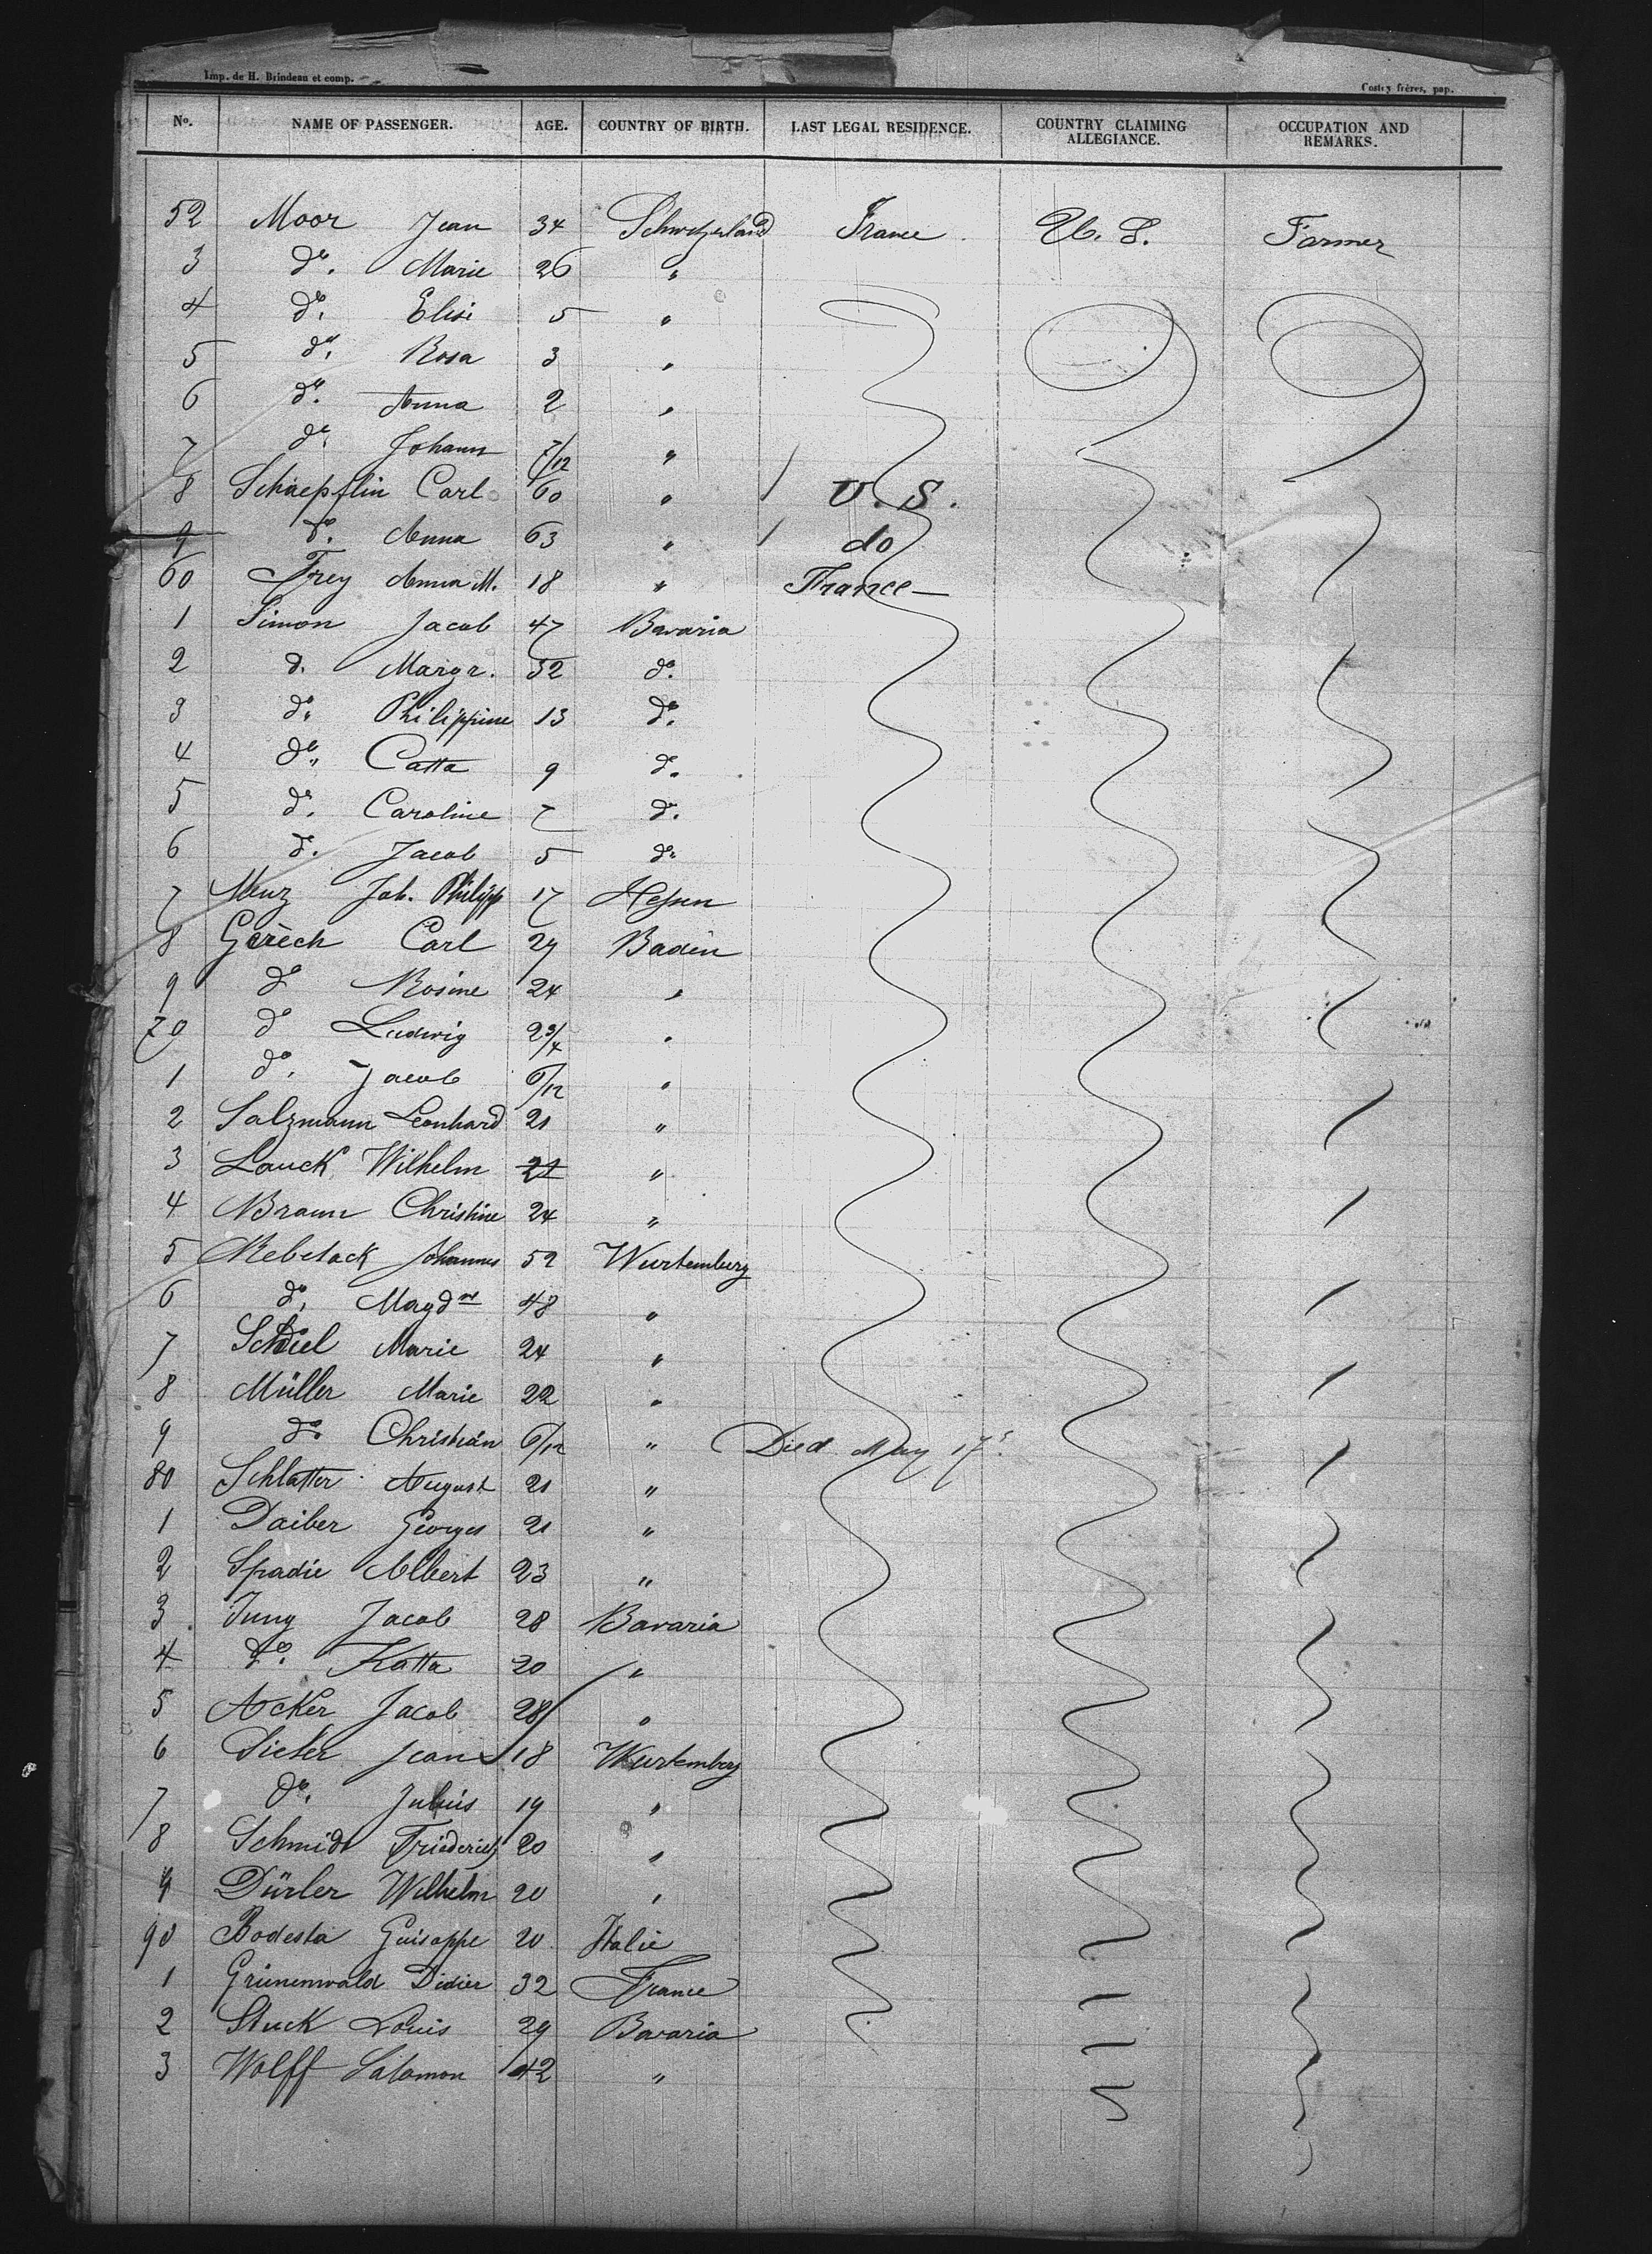 Imp. de H. Brindeau et comp.
Costey frères, pap.
No. NAME OF PASSENGER. AGE. COUNTRY OF BIRTH. LAST LEGAL RESIDENCE. COUNTRY CLAIMING ALLEGIANCE. OCCUPATION AND REMARKS.
52 Moor Jean 34 Schwitzerland France U. S. Farmer
3 do. Marie 26 "
4 do. Elise 5 "
5 do. Rosa 3 "
6 do. Anna 2 "
7 do. Johann 7/12 "
8 Schaepflin Carl 60 " / U. S.
9 do. Anna 63 " / do
60 Frey Anna M. 18 " France —
1 Simon Jacob 47 Bavaria
2 d. Margr. 52 do.
3 do. Philippine 13 do.
4 do. Catta 9 do.
5 do. Caroline 7 do.
6 do. Jacob 5 do
7 Menz Joh. Philipp 17 Hessen
8 Gerèch Carl 29 Baden
9 do Rosine 24 "
70 do Ludwig 2 3/4 "
1 do. Jacob 6/12 "
2 Salzmann Leonhard 21 "
3 Lauck Wilhelm 21 "
4 Braun Christine 24 "
5 Rebstock Johannes 52 Wurtemburg
6 do. Magdne 48 "
7 Marie 24 "
8 Müller Marie 22 "
9 do. Christian 6/12 " Died May 17
80 Schlatter August 21 "
1 Daiber Georges 21 "
2 Spadie Albert 23 "
3 Jung Jacob 28 Bavaria
4 do. Katta 20 "
5 Acker Jacob 28 "
6 Dieter Jean 18 Wurtemberg
7 do. Julius 19 "
8 Schmidt Friederich 20 "
9 Dürler Wilhelm 20 "
90 Bodesta Guiseppe 20 Italie
1 Grünenwald Didier 32 France
2 Stuck Louis 29 Bavaria
3 Wolff Salomon 42 "